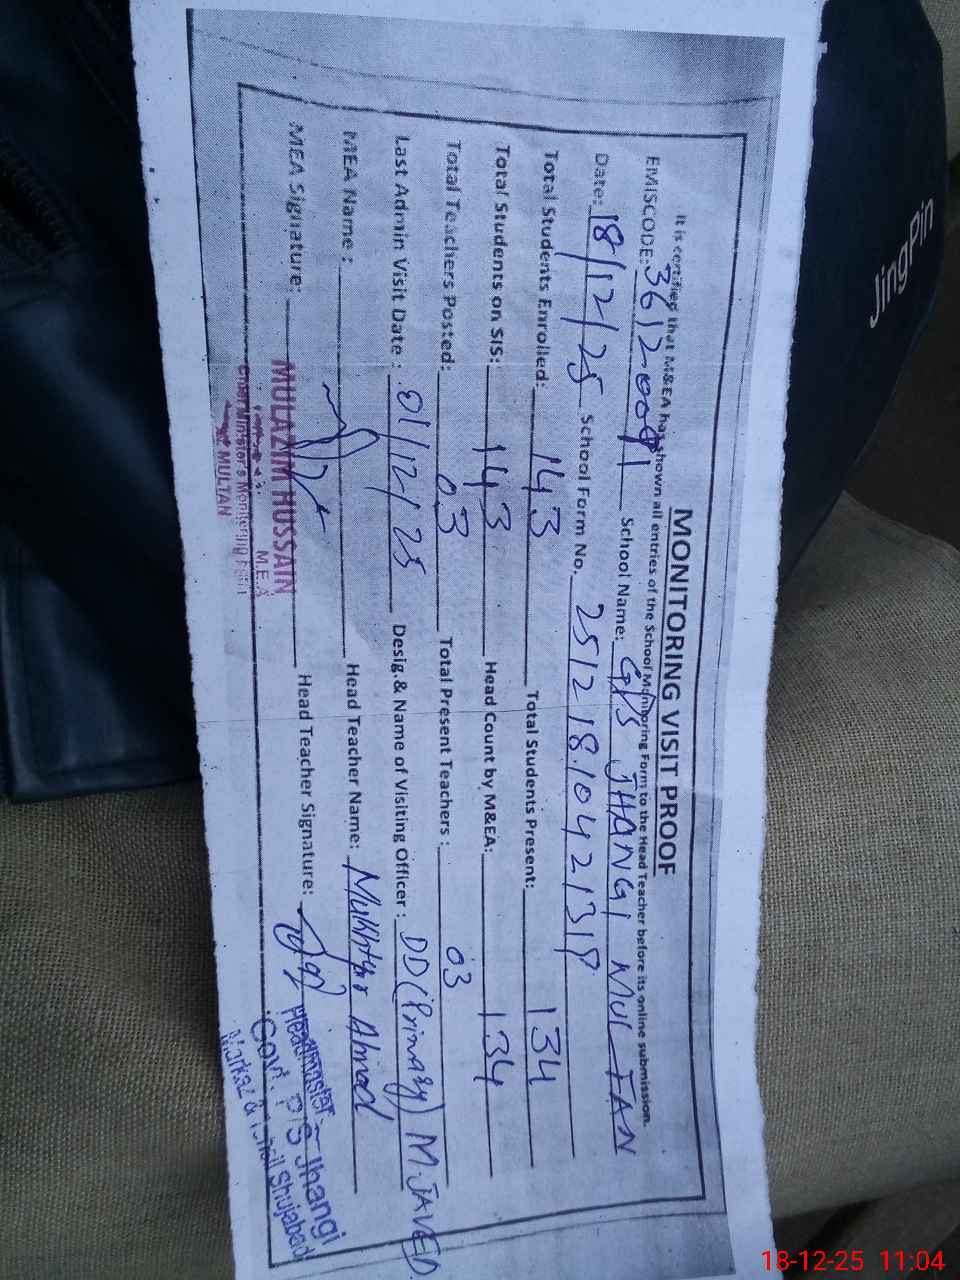 MONITORING VISIT PROOF
It is certified that M&EA has shown all entries of the School Monitoring Form to the Head Teacher before its online submission.
EMISCODE: School Name: GPS JHANGI MULTAN
Date: 18/12/25 School Form No.
Total Students Enrolled: 143 Total Students Present: 134
Total Students on SIS: 143 Head Count by M&EA: 134
Total Teachers Posted: 03 Total Present Teachers : 03
Last Admin Visit Date : 01/12/25 Desig.& Name of Visiting Officer : DD (Primary) M.JAVED
MEA Name : Head Teacher Name: Mukhtyar Ahmad
MEA Signature: Head Teacher Signature:
MULAZIM HUSSAIN
M.E.A
Chief Minister's Monitoring
MULTAN
Headmaster
Govt. P/S Jhangi
Markaz & Tehsil Shujabad
JingPin
18-12-25 11:04